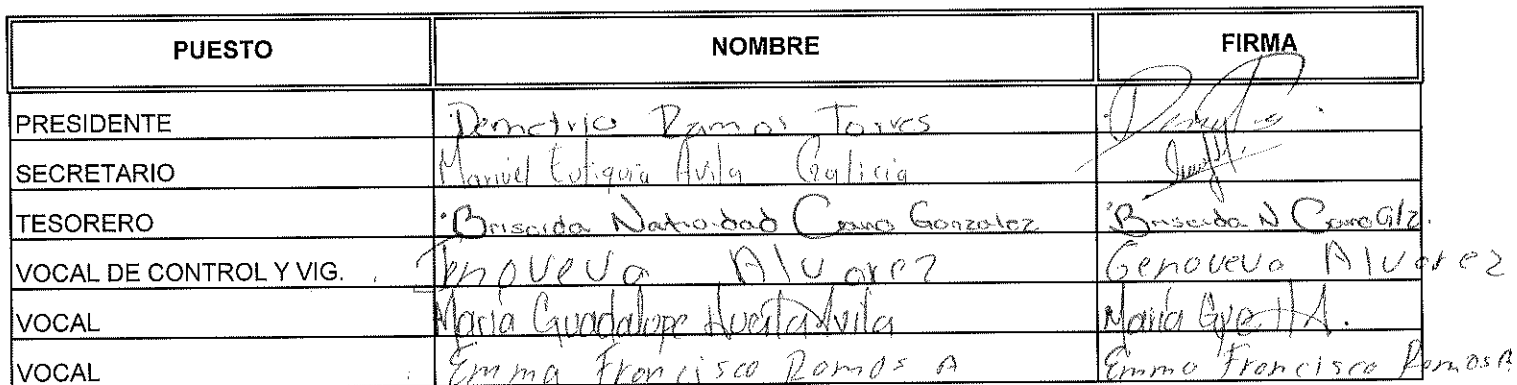 PUESTO NOMBRE FIRMA
PRESIDENTE Demetrio Ramos Torres
SECRETARIO Marivel Eutiquia Avila Galicia
TESORERO Briseida Natividad Cano Gonzalez Briseida N Cano Glz.
VOCAL DE CONTROL Y VIG. Genoveva Alvarez Genoveva Alvarez
VOCAL Maria Guadalupe Huerta Avila Maria Gpe H A.
VOCAL Emma Francisco Ramos A Emma Francisco Ramos A